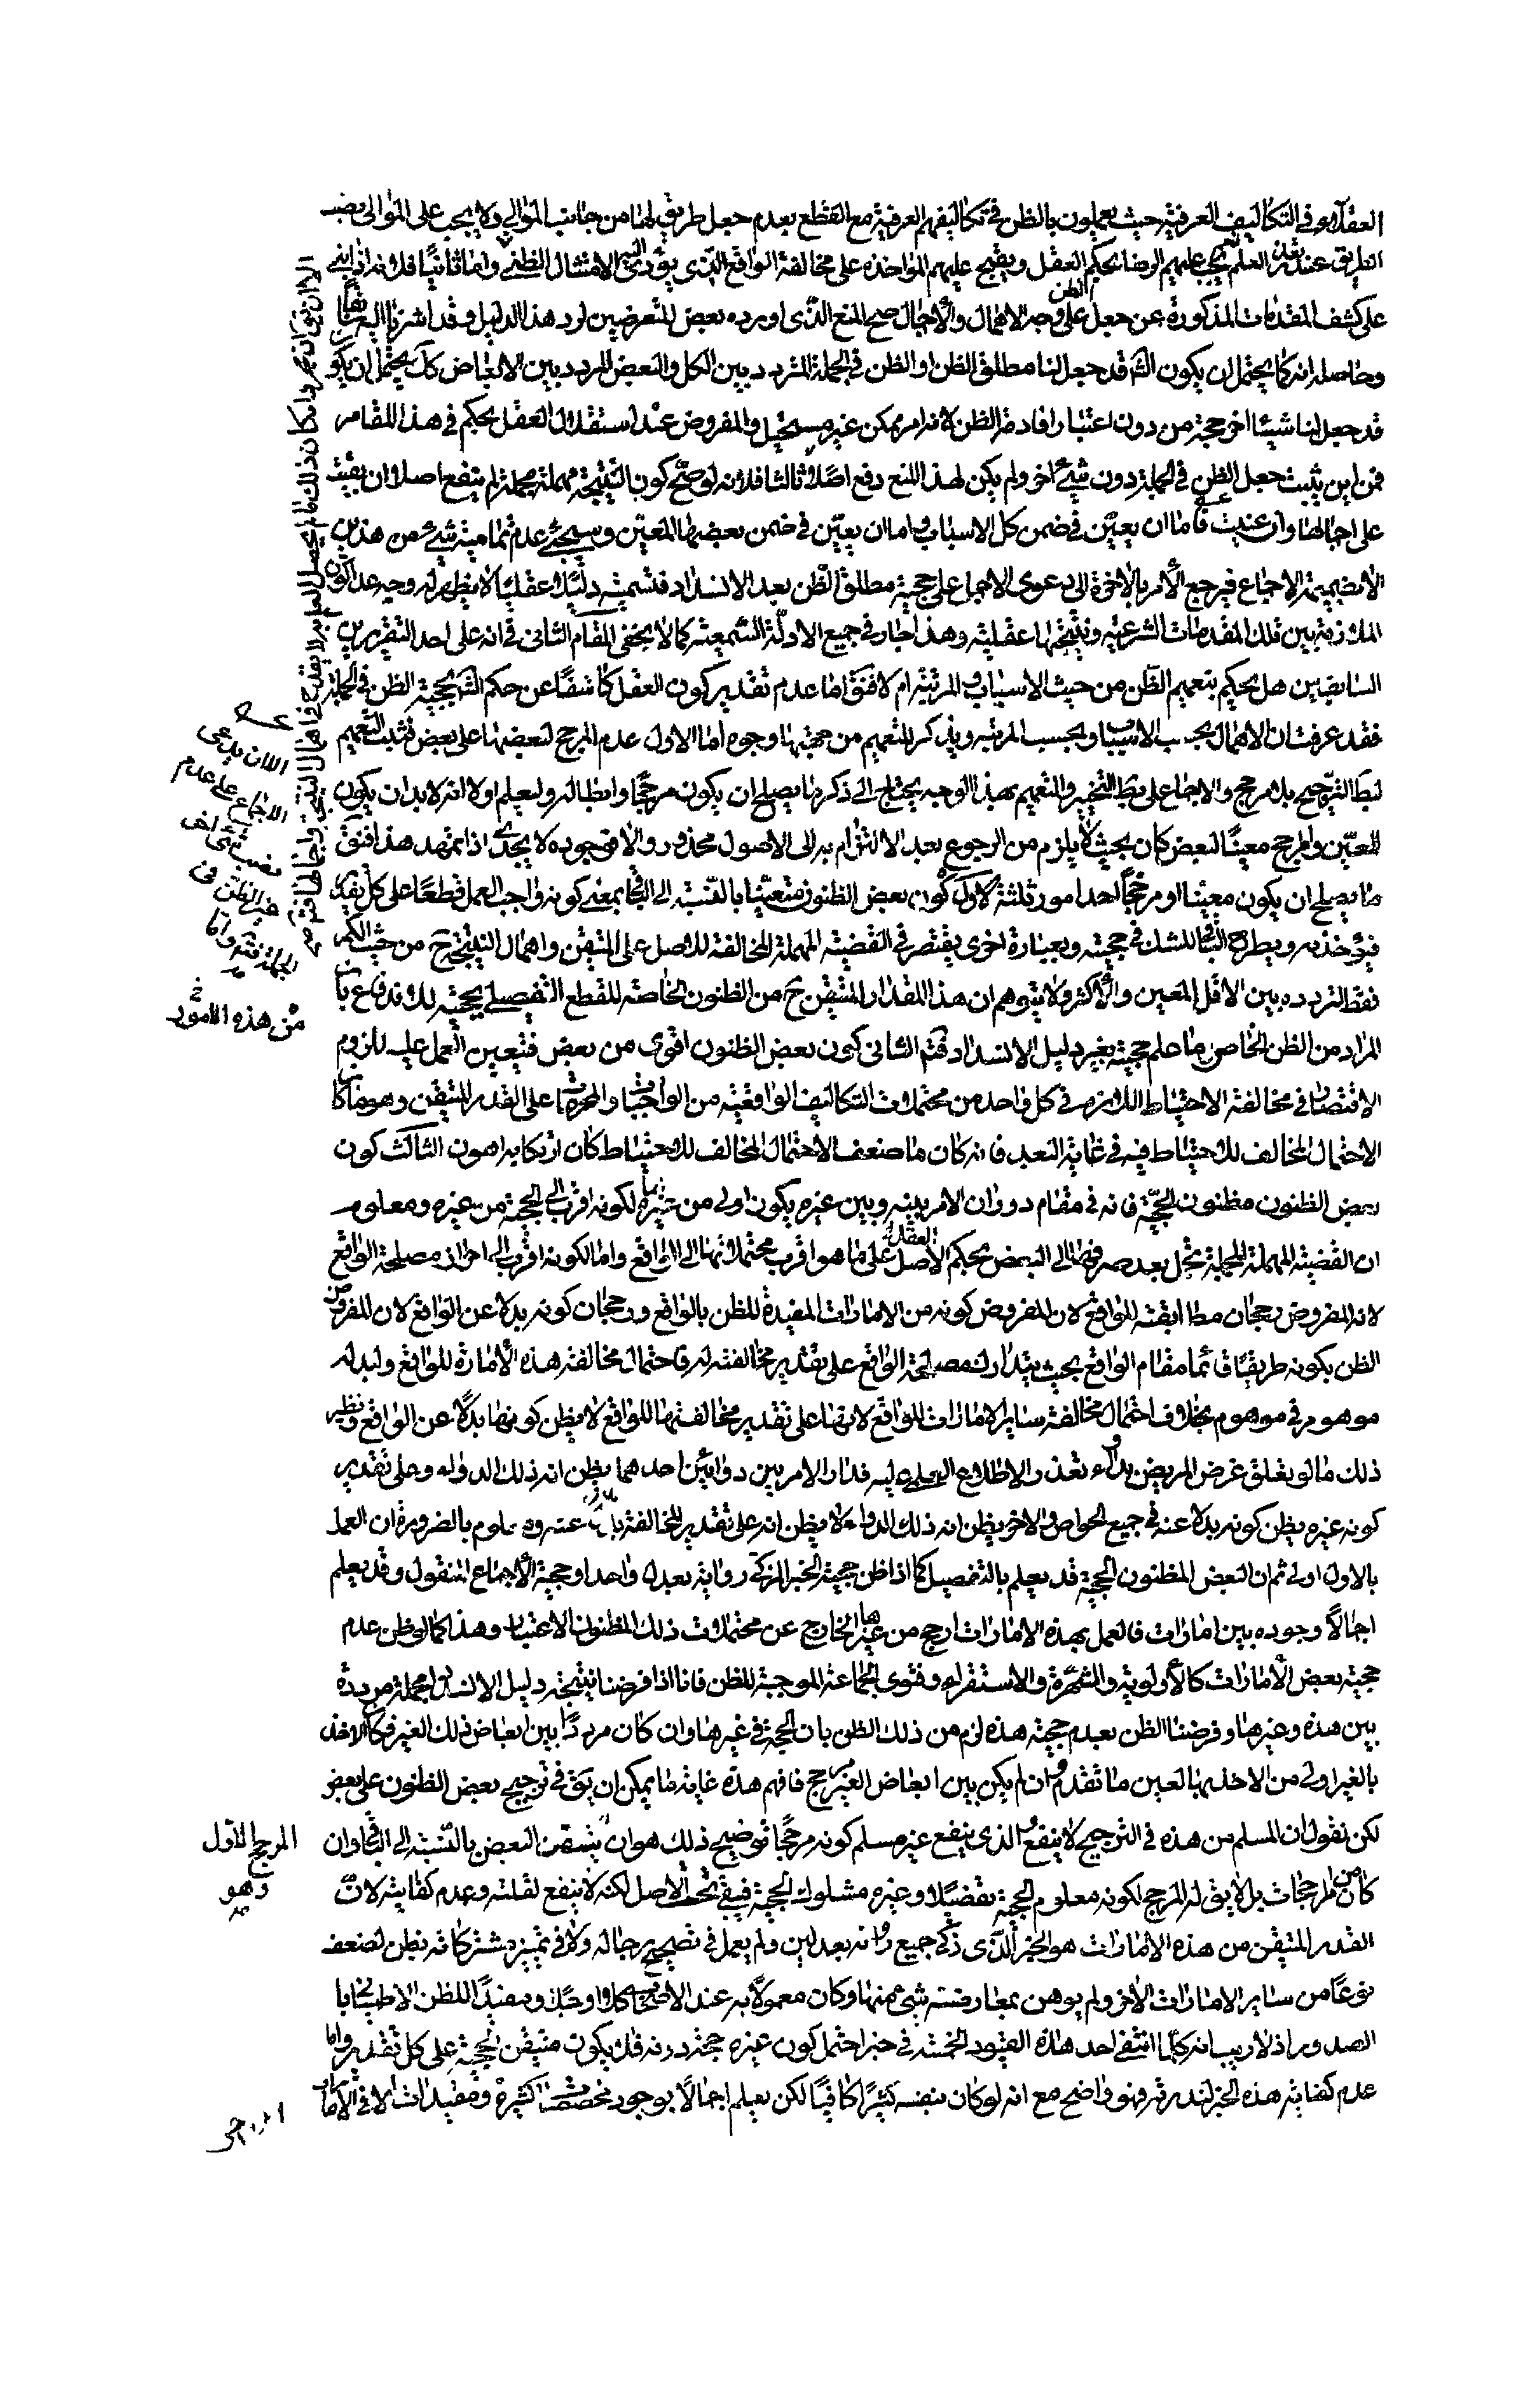 العقلاء هو في التكاليف العرفية حيث يعملون بالظن في تكاليفهم العرفية مع القطع بعدم جعل طريق لها من جانب الموالي ولا يجب على الموالي نصب
الطريق عند تعذر العلم نعم يجب عليهم الرضا بحكم العقل ويقبح عليهم المؤاخذة على مخالفة الواقع الذي يؤدي اليه الامتثال الظني واما ثانيا فلانه اذا بني
على كشف المقدمات المذكورة عن جعل الظن على وجه الاهمال والاجمال صح المنع الذي اورده بعض المتعرضين لرد هذا الدليل وقد اشرنا اليه سابقا
وحاصله انه كما يحتمل ان يكون الشه قد جعل لنا مطلق الظن او الظن في الجملة المتردد بين الكل والبعض المردد بين الابعاض كك يحتمل ان يكو
قد جعل لنا شيئا اخر حجة من دون اعتبار افادة الظن لانه امر ممكن غير مستحيل والمفروض عند استقلال العقل بحكم في هذا المقام
فمن اين يثبت جعل الظن في الجملة دون شيء اخر ولم يكن لهذا المنع دفع اصلا وثالثا فلانه لو صح كون النتيجة مهملة مجملة لم ينفع اصلا ان بقيت
على اجمالها وان عينت فاما ان يعين في ضمن كل الاسباب واما ان يعين في ضمن بعضها المعين وسيجئ عدم تمامية شيء من هذين
الا بضميمة الاجماع فيرجع الامر بالاخرة الى دعوى الاجماع على حجية مطلق الظن بعد الانسداد فتسميته دليلا عقليا لا يظهر له وجه عدا كون
الملازمة بين تلك المقدمات الشرعية ونتيجتها عقلية وهذا جار في جميع الادلة السمعية كما لا يخفى المقام الثاني في انه على احد التقريرين
السابقين هل يحكم بتعميم الظن من حيث الاسباب والمرتبة ام لا فنق اما على تقدير كون العقل كاشفا عن حكم الشه بحجية الظن في الجملة
فقد عرفت ان الاهمال بحسب الاسباب وبحسب المرتبة ويذكر للتعميم من جهتها وجوه اما الاول عدم المرجح لبعضها على بعض فثبت التعميم
لبط الترجيح بلا مرجح والاجماع على بط التخيير والتعميم بهذا الوجه يحتاج الى ذكر ما يصلح ان يكون مرجحا وابطاله وليعلم اولا انه لابد ان يكون
المعين والمرجح معينا لبعض كان بحيث لا يلزم من الرجوع بعد الالتزام به الى الاصول محذور والا فوجوده لا يجدي اذا تمهد هذا فنق
ما يصلح ان يكون معينا او مرجحا احد امور ثلثة الاول كون بعض الظنون متعينا بالنسبة الى الباقي بمعنى كونه واجب العمل قطعا على كل تقدير
فيؤخذ به ويطرح الباقي للشك في حجيته وبعبارة اخرى يقتصر في القضية المهملة المخالفة للاصل على المتيقن واهمال النتيجة ح من حيث الكم
فقط لتردده بين الاقل المعين والاكثر ولا يتوهم ان هذا المقدار المتيقن ح من الظنون الخاصة للقطع التفصيلي بحجيته لاندفاعه بان
المراد من الظن الخاص ما علم حجيته بغير دليل الانسداد فتم الثاني كون بعض الظنون اقوى من بعض فتعين العمل عليه للزوم
الاقتصار في مخالفة الاحتياط اللازم في كل واحد من محتملات التكاليف الواقعية من الواجبات والمحرمات على القدر المتيقن وهو ما كان
الاحتمال المخالف للاحتياط فيه في غاية البعد فانه كان ما ضعف الاحتمال المخالف للاحتياط كان ارتكابه اهون الثالث كون
بعض الظنون مظنون الحجية فانه في مقام دوران الامر بينه وبين غيره يكون اولى من غيره اما لكونه اقرب الى الحجية من غيره ومعلوم
ان القضية المهملة المجملة تحمل بعد صرفها الى البعض بحكم العقل على ما هو اقرب محتملاتها الى الواقع واما لكونه اقرب الى احراز مصلحة الواقع
لانه المفروض رجحان مطابقته للواقع لان المفروض كونه من الامارات المفيدة للظن بالواقع ورجحان كونه بدلا عن الواقع لان المفروض
الظن بكونه طريقا قائما مقام الواقع بحيث يتدارك مصلحة الواقع على تقدير مخالفته له فاحتمال مخالفة هذه الامارة للواقع ولبدله
موهوم في موهوم بخلاف احتمال مخالفة ساير الامارات للواقع لانها على تقدير مخالفتها للواقع لا يظن كونها بدلا عن الواقع ونظير
ذلك ما لو تعلق غرض المريض بدواء تعذر الاطلاع العلمي عليه فدار الامر بين دوائين احدهما يظن انه ذلك الدواء وعلى تقدير
كونه غيره يظن كونه بدلا عنه في جميع الخواص والاخر يظن انه ذلك الدواء ولا يظن انه على تقدير المخالفة بدل عنه ومعلوم بالضرورة ان العمل
بالاول اولى ثم ان البعض المظنون الحجية قد يعلم بالتفصيل كما اذا ظن حجية الخبر المزكى رواته بعدل واحد او حجية الاجماع المنقول وقد يعلم
اجمالا وجوده بين امارات فالعمل بهذه الامارات ارجح من غيرها الخارج عن محتملات ذلك المظنون الاعتبار وهذا كما لو ظن عدم
حجية بعض الامارات كالاولوية والشهرة والاستقراء وفتوى الجماعة الموجبة للظن فانا اذا فرضنا نتيجة دليل الانسداد مجملة مرددة
بين هذه وغيرها وفرضنا الظن بعدم حجية هذه لزم من ذلك الظن بان الحجة في غيرها وان كان مرددا بين ابعاض ذلك الغير فكان الاخذ
بالغير اولى من الاخذ بها لعين ما تقدم وان لم يكن بين ابعاض الغير مرجح فافهم هذه غاية ما يمكن ان يق في ترجيح بعض الظنون على بعض
لكن نقول ان المسلم من هذه في الترجيح لا ينفع والذي ينفع غير مسلم كونه مرجحا توضيح ذلك هو ان تيقن البعض بالنسبة الى الباقي وان
كان من المرجحات بل لا يق له المرجح لكونه معلوم الحجية تفصيلا وغيره مشكوك الحجية فيبقى تحت الاصل لكنه لا ينفع لقلته وعدم كفايته لان
القدر المتيقن من هذه الامارات هو الخبر الذي زكى جميع رواته بعدلين ولم يعمل في تصحيح رجاله ولا في تمييز مشتركاته بظن لضعف
نوعا من ساير الامارات الاخر ولم يوهن بمعارضة شيء منها وكان معمولا به عند الاصحاب كلا او جلا ومفيدا للظن الاطميناني با
الصدور اذ لا ريب انه كلما انتفى احد هذه القيود الخمسة في خبر احتمل كون غيره حجة دونه فلا يكون متيقن الحجية على كل تقدير واما
عدم كفاية هذه الخبر لندرته فهو واضح مع انه لو كان بنفسه كثيرا كافيا لكن يعلم اجمالا بوجود مخصصات كثيرة ومقيدات لا في الامارات
الا ان يق ان مجرد امكان ذلك ما لم يحصل العلم به لا يقدح في اهمال النتيجة واجمالها فتم
الا ان يدعى
الاجماع على عدم
نصب شئ اخر
غير الظن في
الجملة فتم واما
من هذه الامور
المرجح الاول
وهو